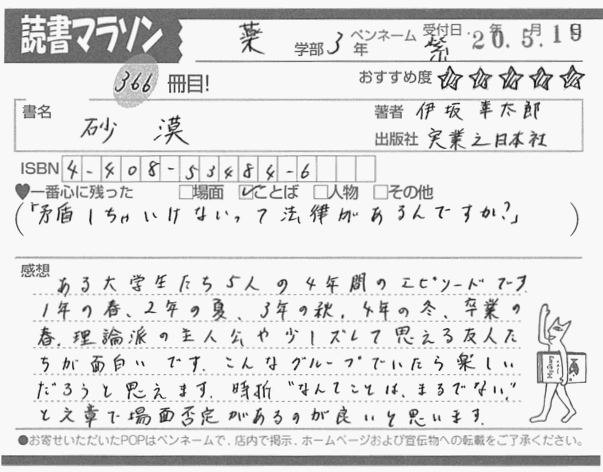 読書マラソン
薬 学部 3 年 ペンネーム 紫 受付日・ 年 月 日
20.5.19
366 冊目! おすすめ度 ☆☆☆☆☆
書名 砂漠
著者 伊坂幸太郎
出版社 実業之日本社
ISBN 4-408-53484-6
♥一番心に残った □場面 ☑ことば □人物 □その他
(「矛盾しちゃいけないって法律があるんですか?」)
感想
ある大学生たち5人の4年間のエピソードです
1年の春、2年の夏、3年の秋、4年の冬、卒業の
春。理論派の主人公や少しズレて思える友人た
ちが面白いです。こんなグループでいたら楽しい
だろうと思えます。時折"なんてことは、まるでない"
と文章で場面否定があるのが良いと思います。
●お寄せいただいたPOPはペンネームで、店内で掲示、ホームページおよび宣伝物への転載をご了承ください。